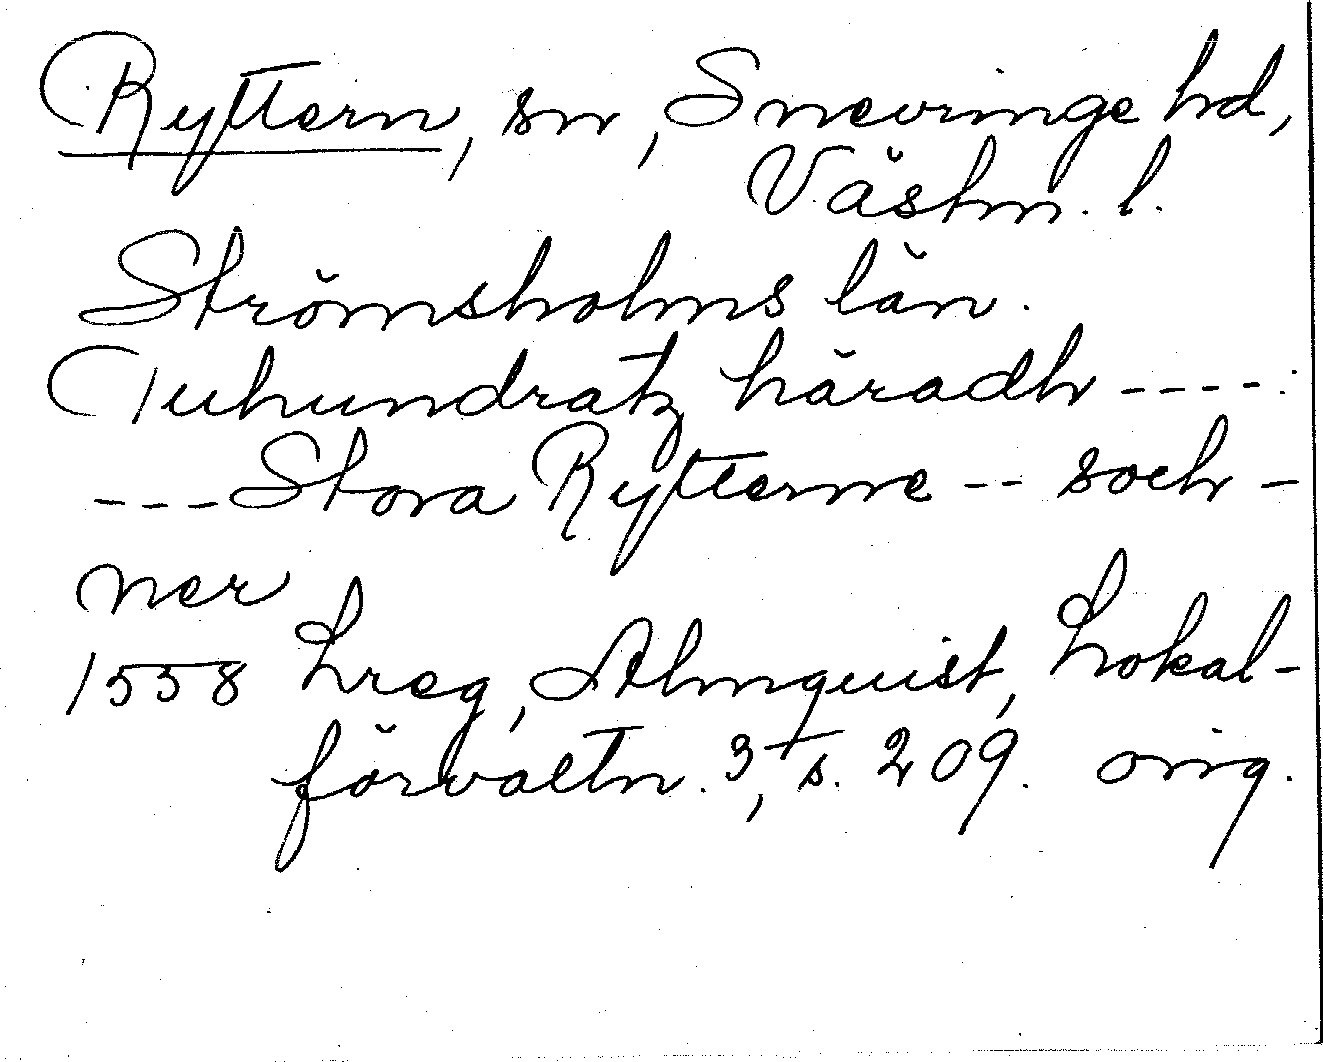 Ryttern, sn, Snevringe hd,
Västm. l.
Strömsholms län.
Tuhundratz häradh ----:
--- Stora Rytterne -- soch-
ner
1558 Lreg, Almquist, Lokal-
förvaltn. 3, s. 209. orig.